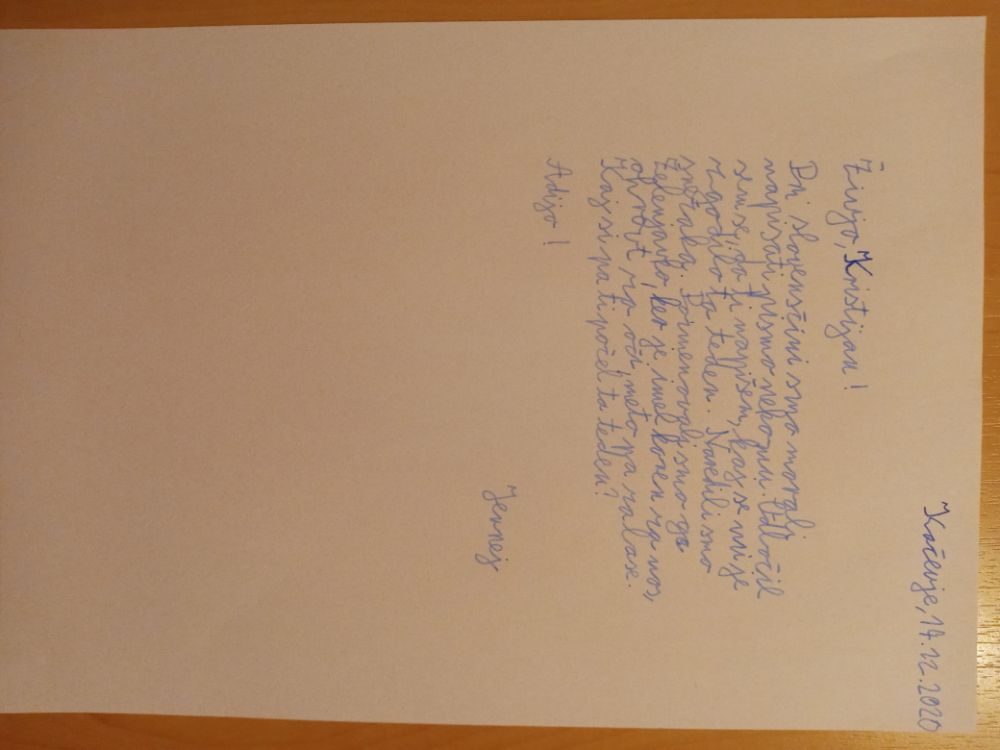 Kočevje, 14.12.2020
Živjo, Kristijan!
Pri slovenščini smo morali
napisati pismo nekomu. Odločil
sem se, da ti napišem, kaj se mi je
zgodilo ta teden. Naredili smo
snežaka. Poimenovali smo ga
Zelenjavko, ker je imel koren za nos,
ohrovt za oči, meto pa za lase.
Kaj si pa ti počel ta teden?
Adijo!
Jernej